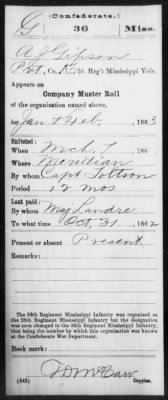 (Confederate.)
G 36 Miss.
A J Gipson
Pvt, Co. K, 36 Reg't Mississippi Vols.
Appears on
Company Muster Roll
of the organization named above,
for Jan & Feb, 1863.
Enlisted:
When Mch 7, 186
Where Meridian
By whom Capt
Period 12 mos
Last paid:
By whom Maj Landre
To what time Oct 31, 1862
Present or absent Present
Remarks:
The 36th Regiment Mississippi Infantry was organized as
the Regiment Mississippi Infantry but the designation
was soon changed to the 36th Mississippi Infantry, that
being the number by which this organization was known at
the Confederate War Department.
Book mark:
(642) Copyist.